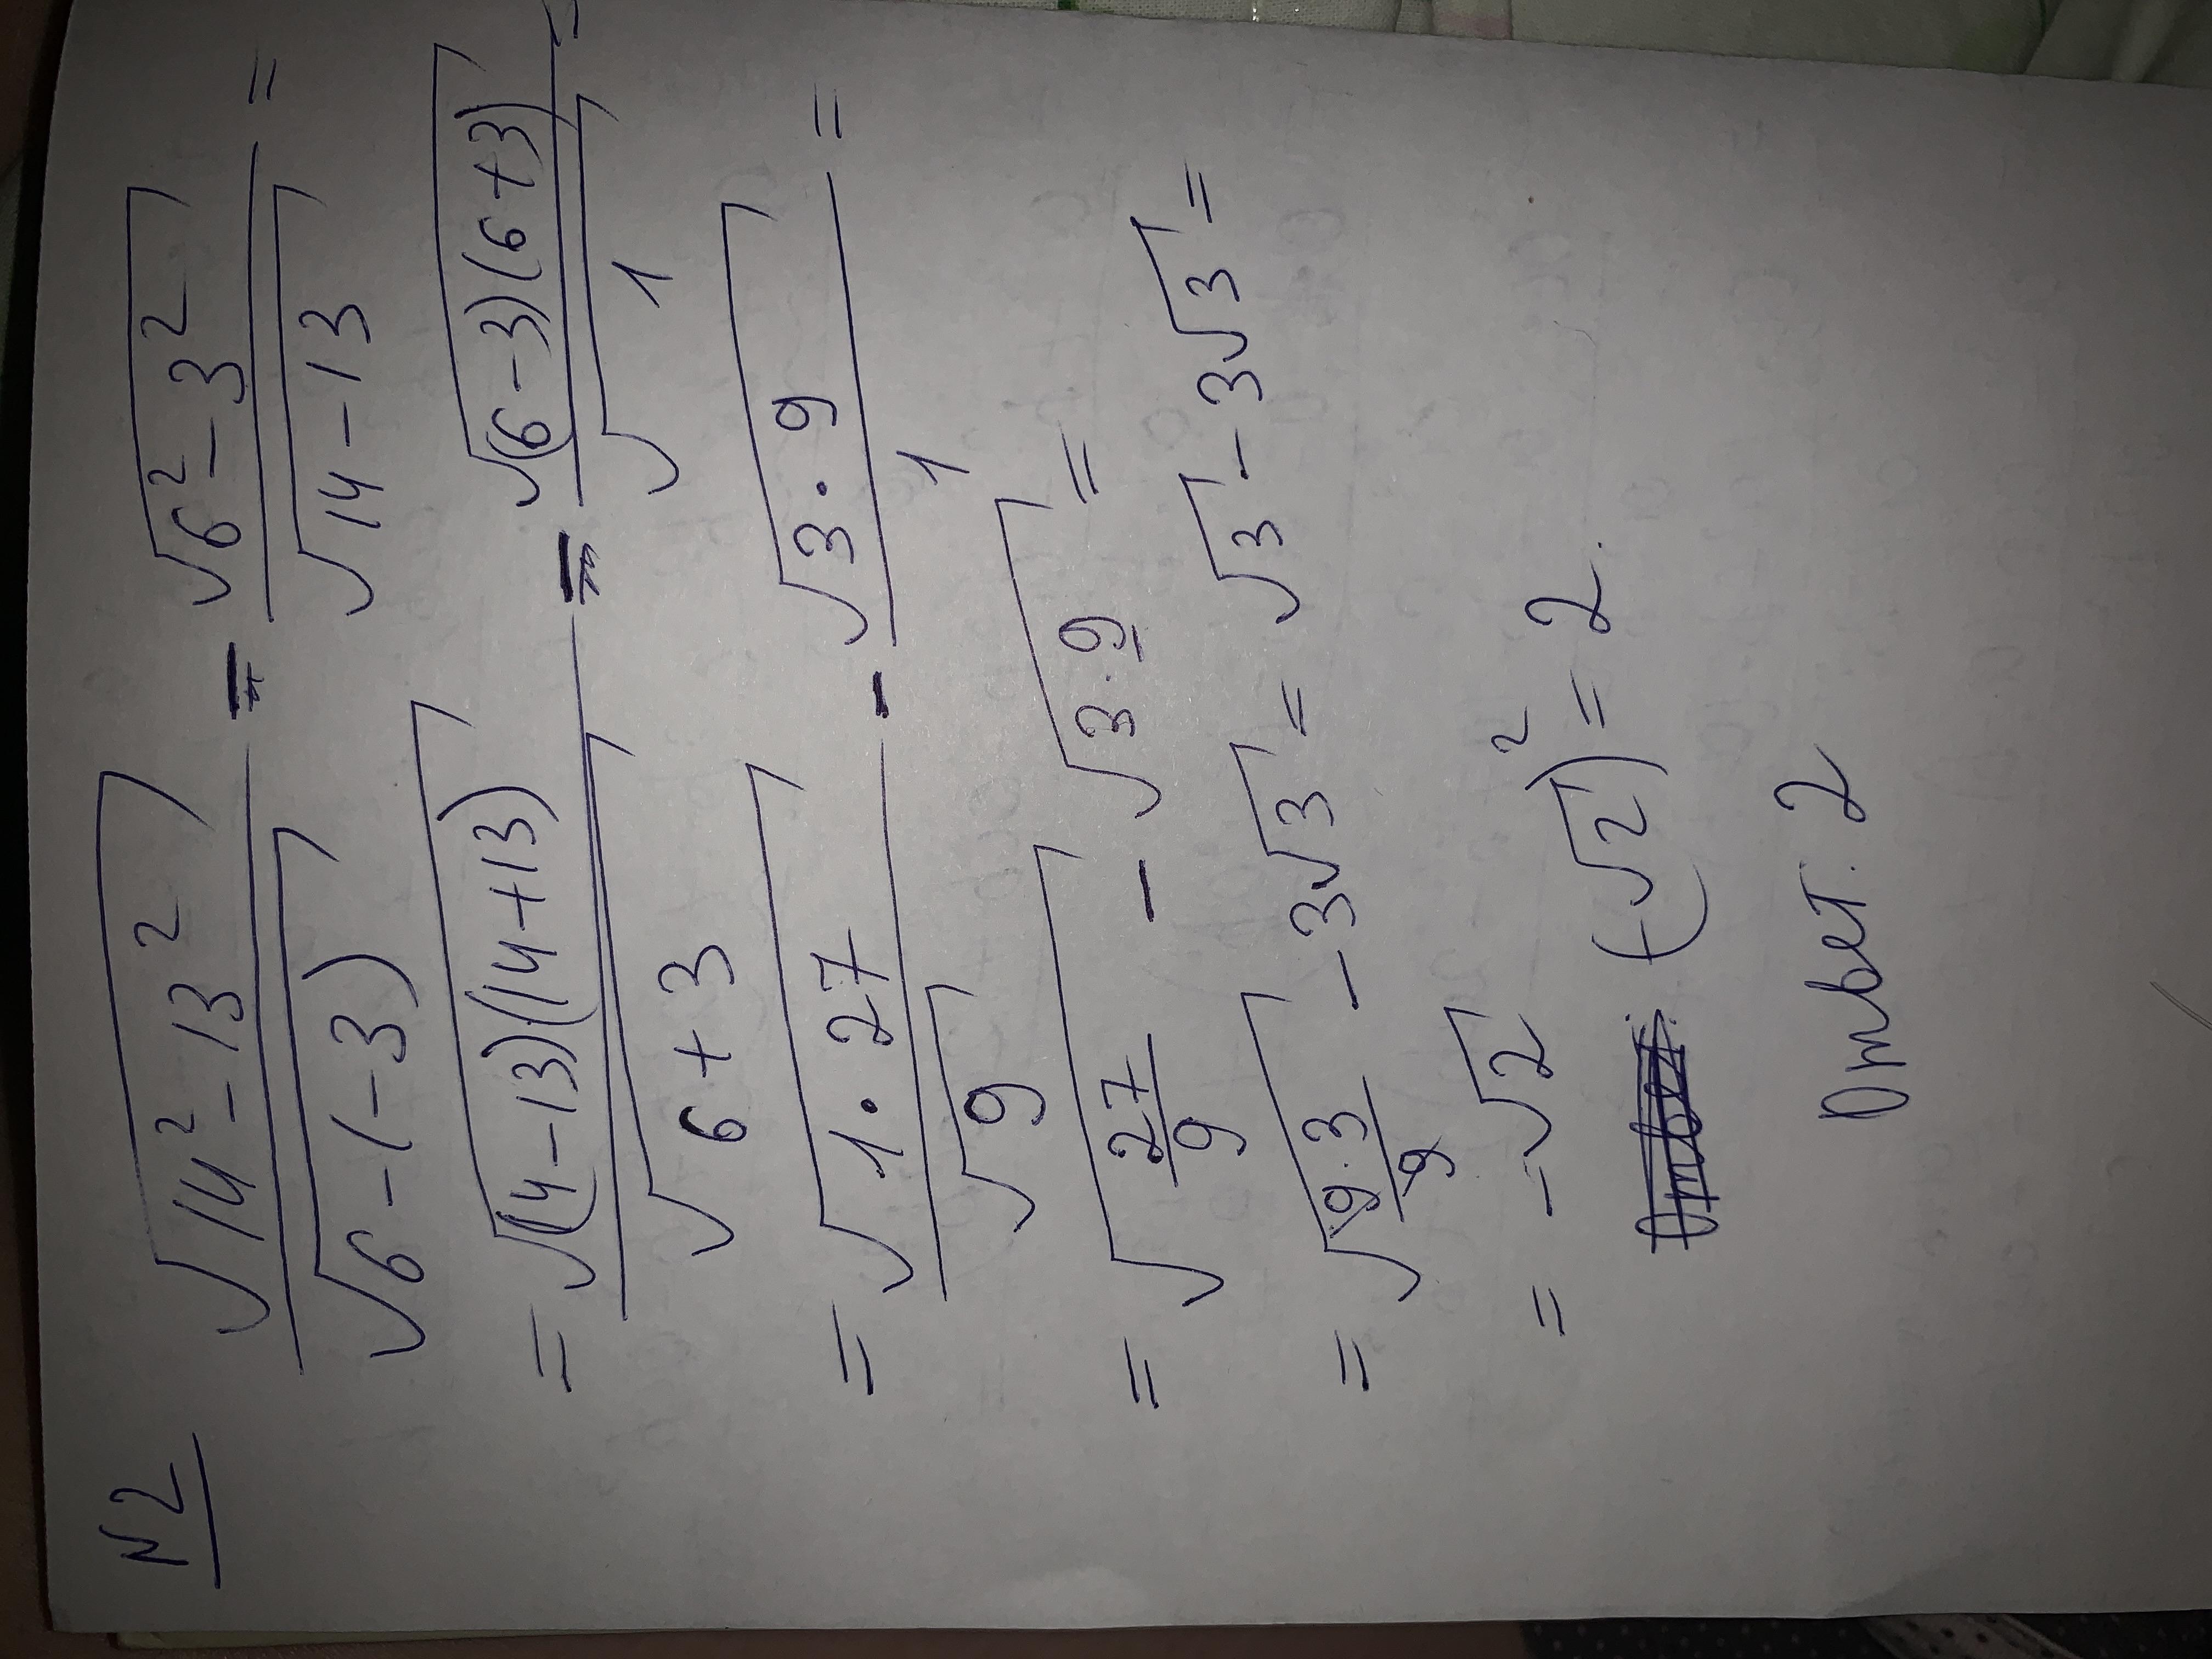 N2
√(14² - 13²) / √(6 - (-3)) - √(6² - 3²) / √(14 - 13) =
= √((14 - 13)(14 + 13)) / √(6 + 3) - √((6 - 3)(6 + 3)) / √1 =
= √(1 · 27) / √9 - √(3 · 9) / 1 =
= √(27/9) - √(3 · 9) =
= √(9·3/9) - 3√3 = √3 - 3√3 =
= -√2 (-√2)² = 2.
Ответ: 2